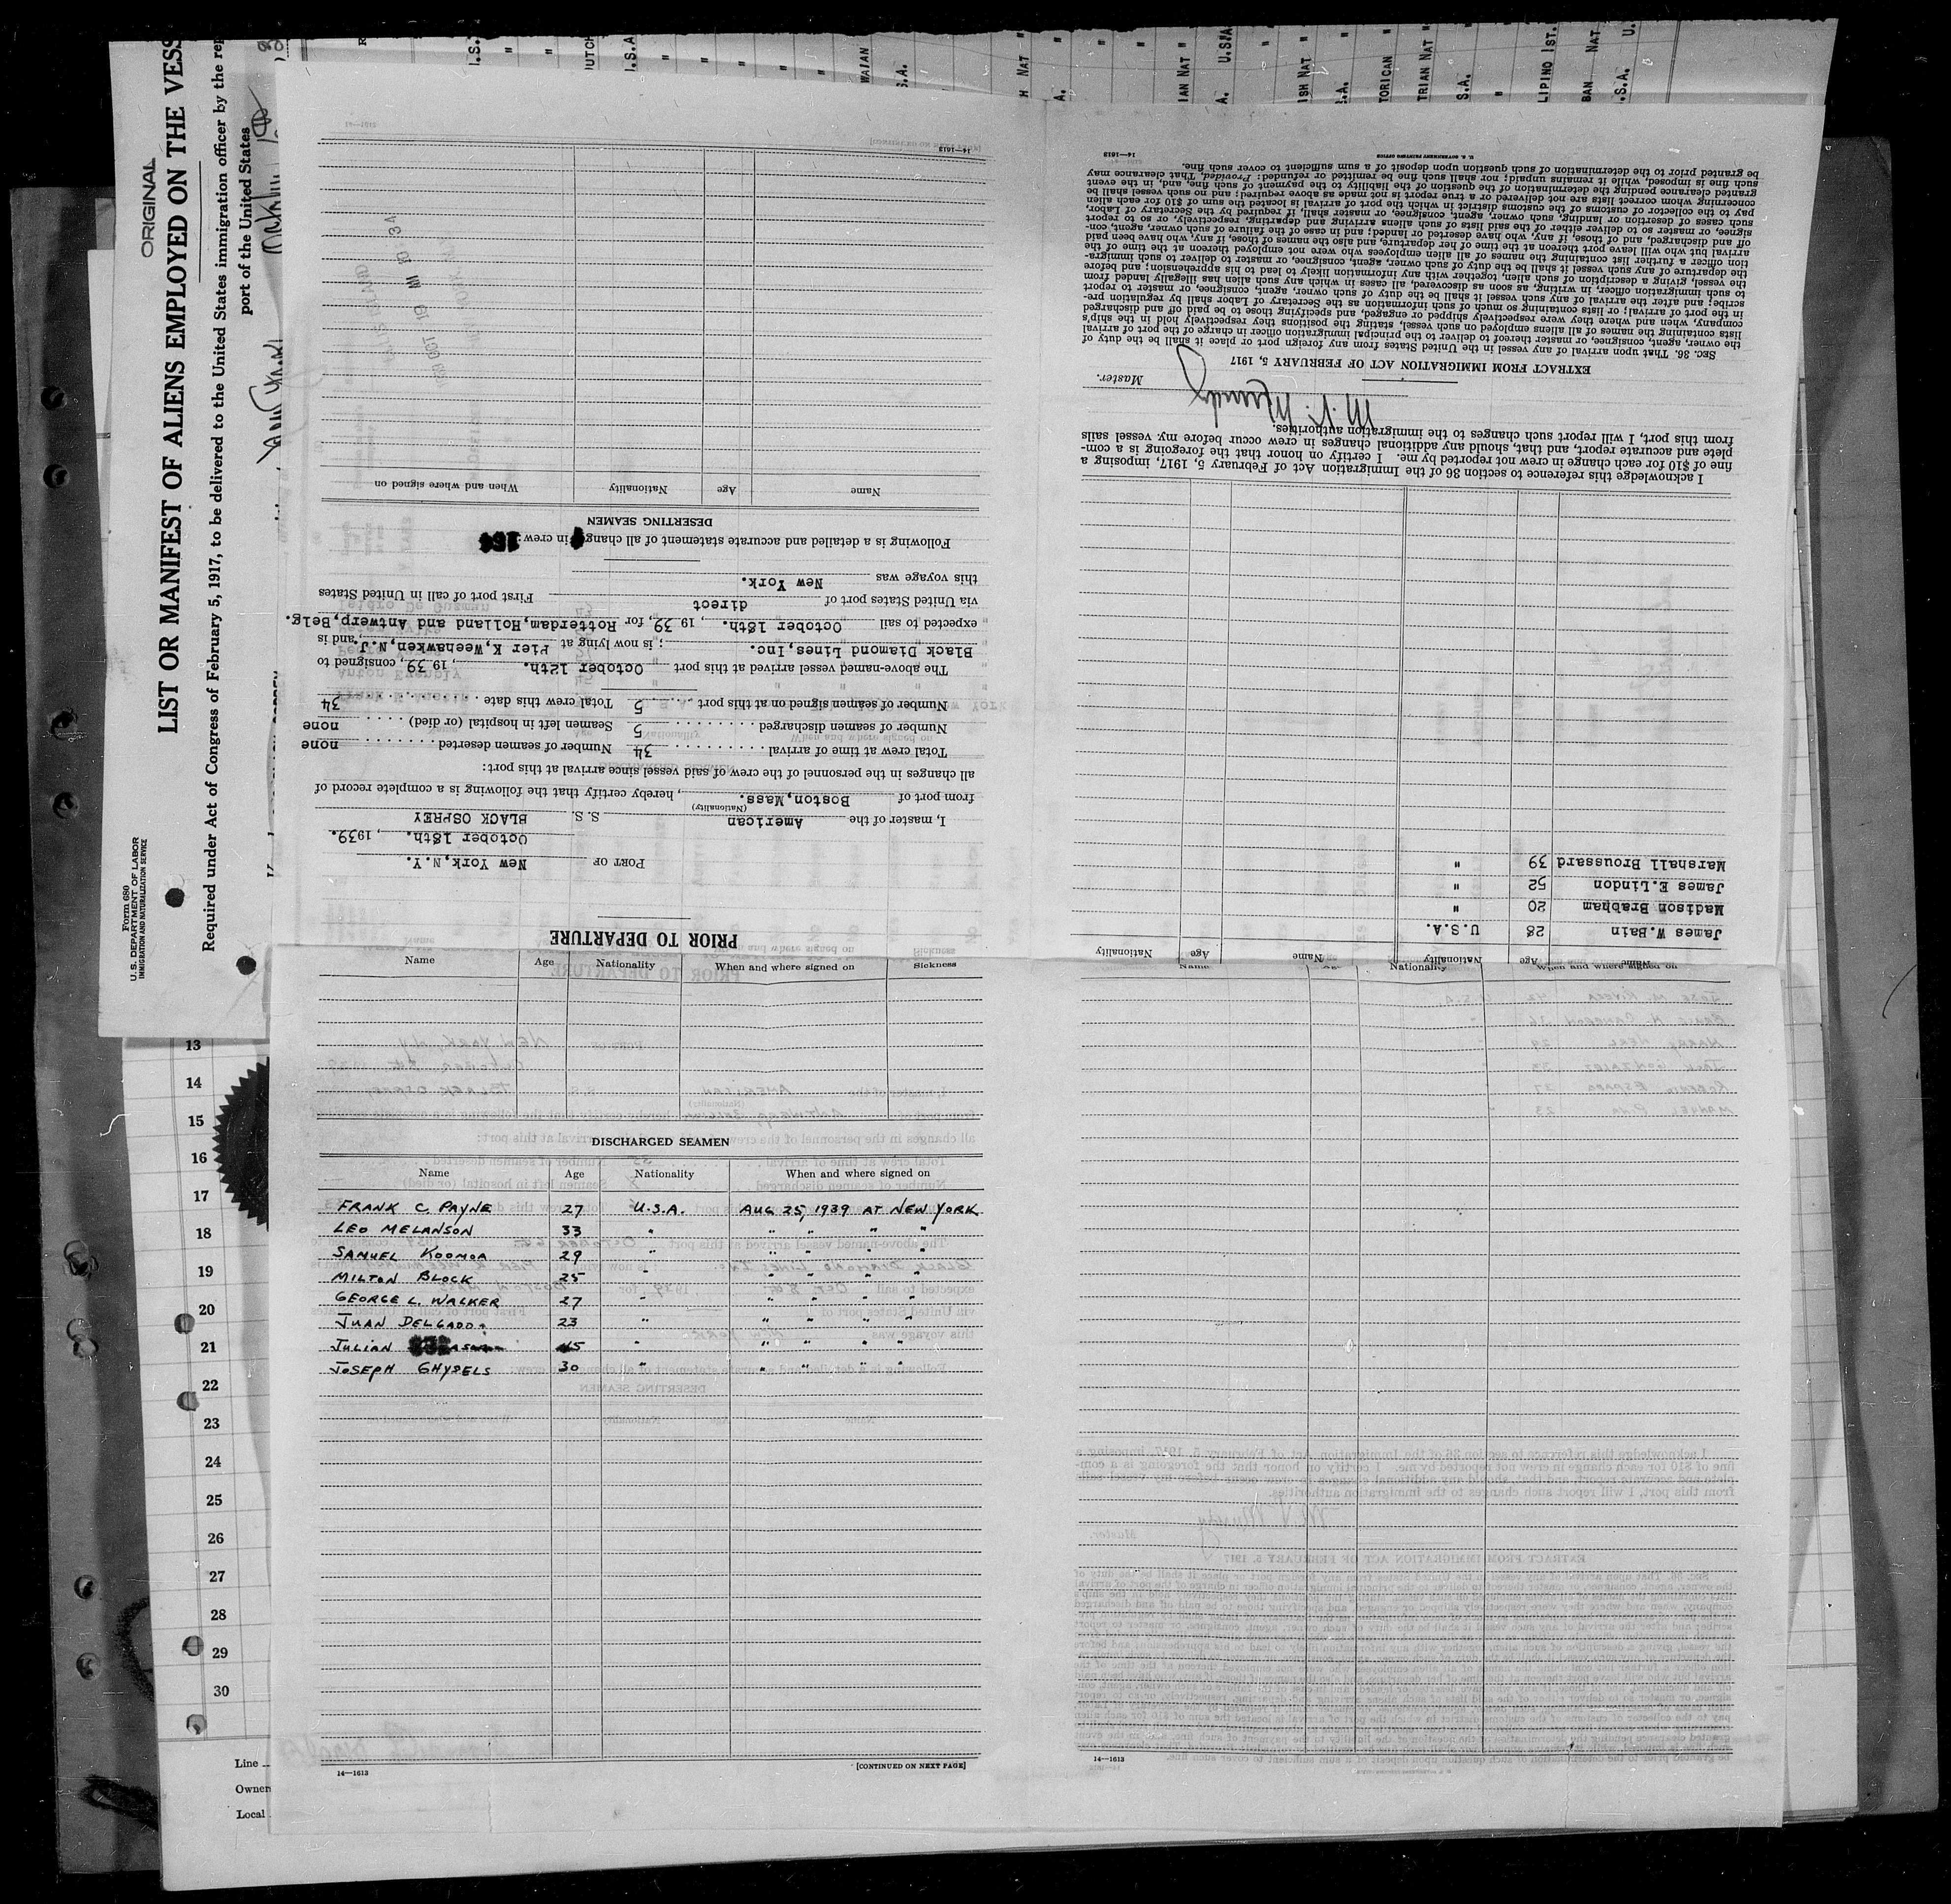 ORIGINAL
Form 680
U.S. DEPARTMENT OF LABOR
IMMIGRATION AND NATURALIZATION SERVICE
LIST OR MANIFEST OF ALIENS EMPLOYED ON THE VESS
Required under Act of Congress of February 5, 1917, to be delivered to the United States immigration officer by the rep
port of the United States
PRIOR TO DEPARTURE
PORT OF New York, N.Y.
October 18th. , 1939.
I, master of the American S. S. BLACK OSPREY
(Nationality)
from port of Boston, Mass. , hereby certify that the following is a complete record of
all changes in the personnel of the crew of said vessel since arrival at this port:
Total crew at time of arrival 34 Number of seamen deserted none
Number of seamen discharged 5 Seamen left in hospital (or died) none
Number of seamen signed on at this port 5 Total crew this date 34
The above-named vessel arrived at this port October 12th. , 19 39, consigned to
Black Diamond Lines, Inc. ; is now lying at Pier K, Weehawken, N.J. , and is
expected to sail October 18th. , 19 39, for Rotterdam, Holland and Antwerp, Belg.
via United States port of direct First port of call in United States
this voyage was New York.
Following is a detailed and accurate statement of all change in crew:
DESERTING SEAMEN
Name Age Nationality When and where signed on
14—1613
Name Age Nationality Name Age Nationality
James W. Bain 28 U.S.A.
Madison Brabham 20 "
James E. Lindon 52 "
Marshall Broussard 39 "
I acknowledge this reference to section 36 of the Immigration Act of February 5, 1917, imposing a
fine of $10 for each change in crew not reported by me. I certify on honor that the foregoing is a com-
plete and accurate report, and that, should any additional changes in crew occur before my vessel sails
from this port, I will report such changes to the immigration authorities.
Master.
EXTRACT FROM IMMIGRATION ACT OF FEBRUARY 5, 1917
SEC. 36. That upon arrival of any vessel in the United States from any foreign port or place it shall be the duty of
the owner, agent, consignee, or master thereof to deliver to the principal immigration officer in charge of the port of arrival
lists containing the names of all aliens employed on such vessel, stating the positions they respectively hold in the ship's
company, when and where they were respectively shipped or engaged, and specifying those to be paid off and discharged
in the port of arrival; or lists containing so much of such information as the Secretary of Labor shall by regulation pre-
scribe; and after the arrival of any such vessel it shall be the duty of such owner, agent, consignee, or master to report
to such immigration officer, in writing, as soon as discovered, all cases in which any such alien has illegally landed from
the vessel, giving a description of such alien, together with any information likely to lead to his apprehension; and before
the departure of any such vessel it shall be the duty of such owner, agent, consignee, or master to deliver to such immigra-
tion officer a further list containing the names of all alien employees who were not employed thereon at the time of the
arrival but who will leave port thereon at the time of her departure, and also the names of those, if any, who have been paid
off and discharged, and of those, if any, who have deserted or landed; and in case of the failure of such owner, agent, con-
signee, or master so to deliver either of the said lists of such aliens arriving and departing, respectively, or so to report
such cases of desertion or landing, such owner, agent, consignee, or master shall, if required by the Secretary of Labor,
pay to the collector of customs of the customs district in which the port of arrival is located the sum of $10 for each alien
concerning whom correct lists are not delivered or a true report is not made as above required; and no such vessel shall be
granted clearance pending the determination of the question of the liability to the payment of such fine, and, in the event
such fine is imposed, while it remains unpaid; nor shall such fine be remitted or refunded: Provided, That clearance may
be granted prior to the determination of such question upon deposit of a sum sufficient to cover such fine.
U. S. GOVERNMENT PRINTING OFFICE 14—1613
Name Age Nationality When and where signed on Sickness
DISCHARGED SEAMEN
Name Age Nationality When and where signed on
FRANK C. PAYNE 27 U.S.A. AUG 25, 1939 AT NEW YORK
LEO MELANSON 33 " " " " "
SAMUEL KOOMOA 29 " " " " "
MILTON BLOCK 25 " " " " "
GEORGE L. WALKER 27 " " " " "
JUAN DELGADO 23 " " " " "
JULIAN 45 " " " " "
JOSEPH GHYSELS 30 " " " " "
14—1613 [CONTINUED ON NEXT PAGE]
Name Age Nationality When and where signed on
14—1613
13
14
15
16
17
18
19
20
21
22
23
24
25
26
27
28
29
30
Line
Owner
Local